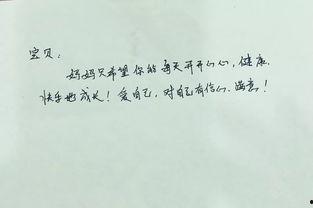 宝贝:
妈妈只希望你能每天开开心心,健康.
快乐地成长!爱自己,对自己有信心.满意!